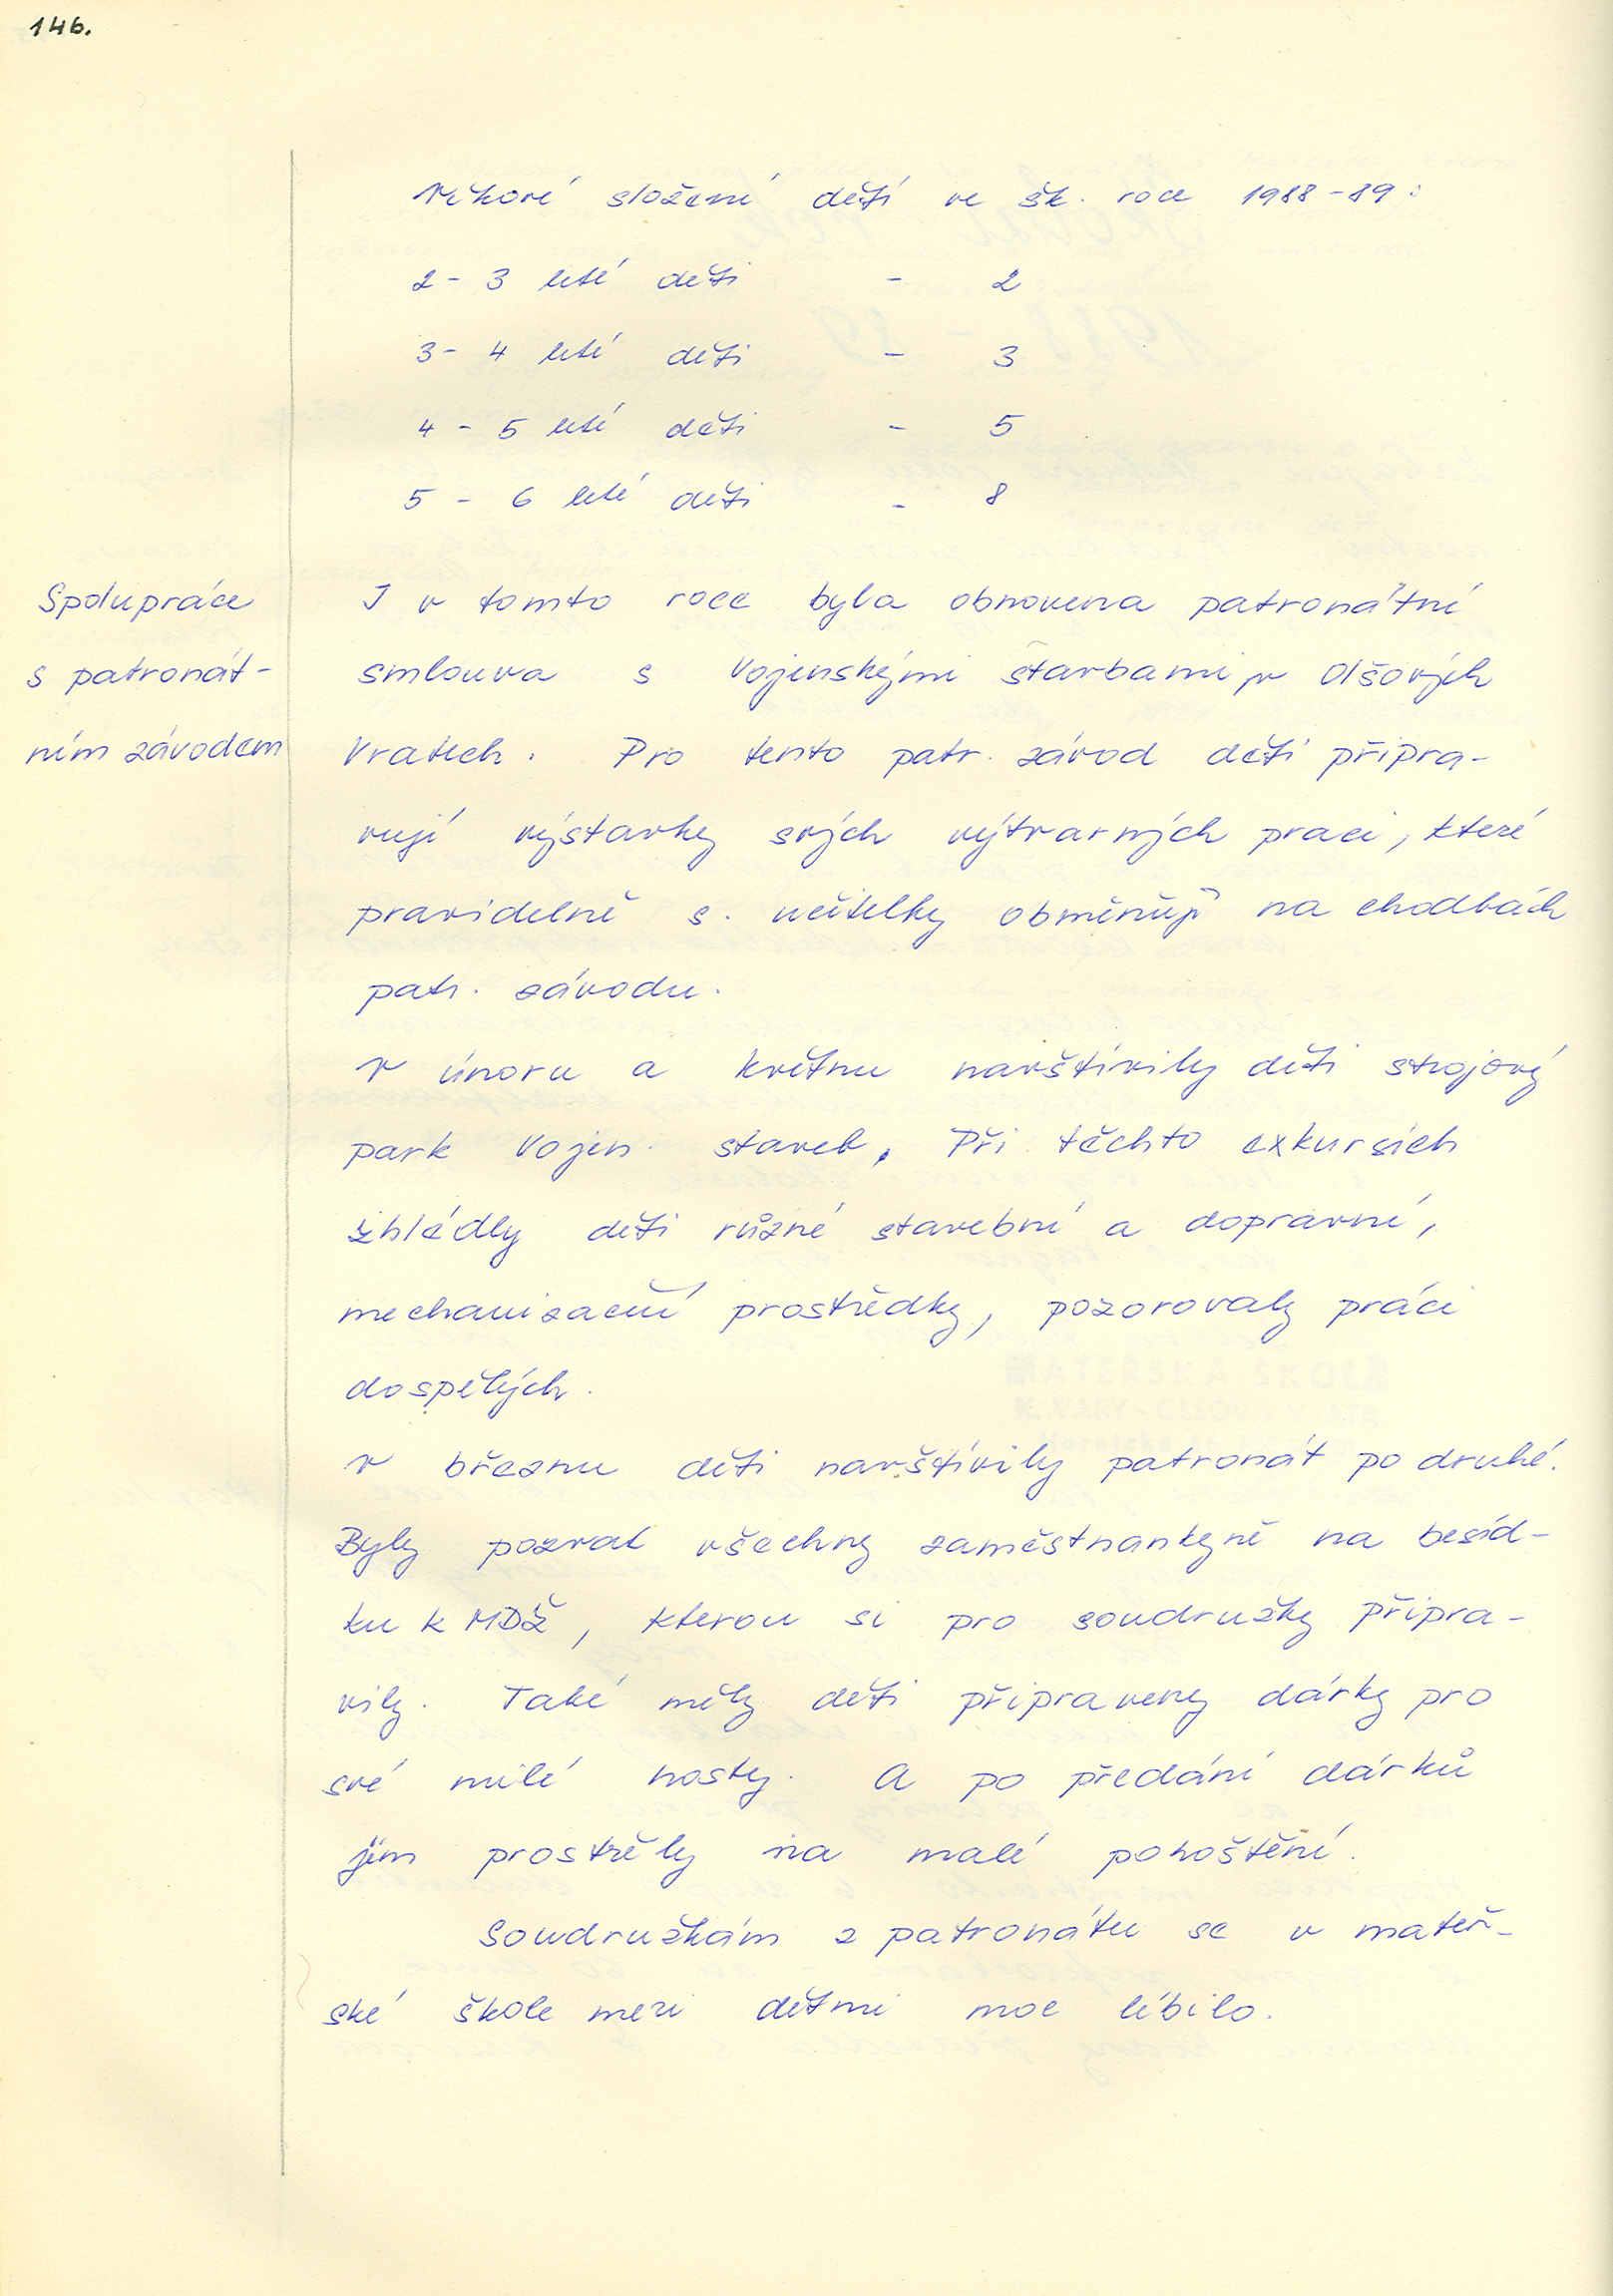 146.
Věkové složení dětí ve šk. roce 1988-89:
2 - 3 leté děti - 2
3 - 4 leté děti - 3
4 - 5 leté děti - 5
5 - 6 leté děti - 8
Spolupráce
s patronát-
ním závodem
I v tomto roce byla obnovena patronátní
smlouva s Vojenskými stavbami v Olšových
Vratech. Pro tento patr. závod děti připra-
vují výstavky svých výtvarných prací, které
pravidelně s. učitelky obměňují na chodbách
patr. závodu.
V únoru a květnu navštívily děti strojový
park Vojen. staveb. Při těchto exkursích
zhlédly děti různé stavební a dopravní,
mechanizační prostředky, pozorovaly práci
dospělých.
V březnu děti navštívily patronát po druhé.
Byly pozvat všechny zaměstnankyně na besíd-
ku k MDŽ, kterou si pro soudružky připra-
vily. Také měly děti připraveny dárky pro
své milé hosty. A po předání dárků
jim prostřely na malé pohoštění.
Soudružkám z patronátu se v mateř-
ské škole mezi dětmi moc líbilo.